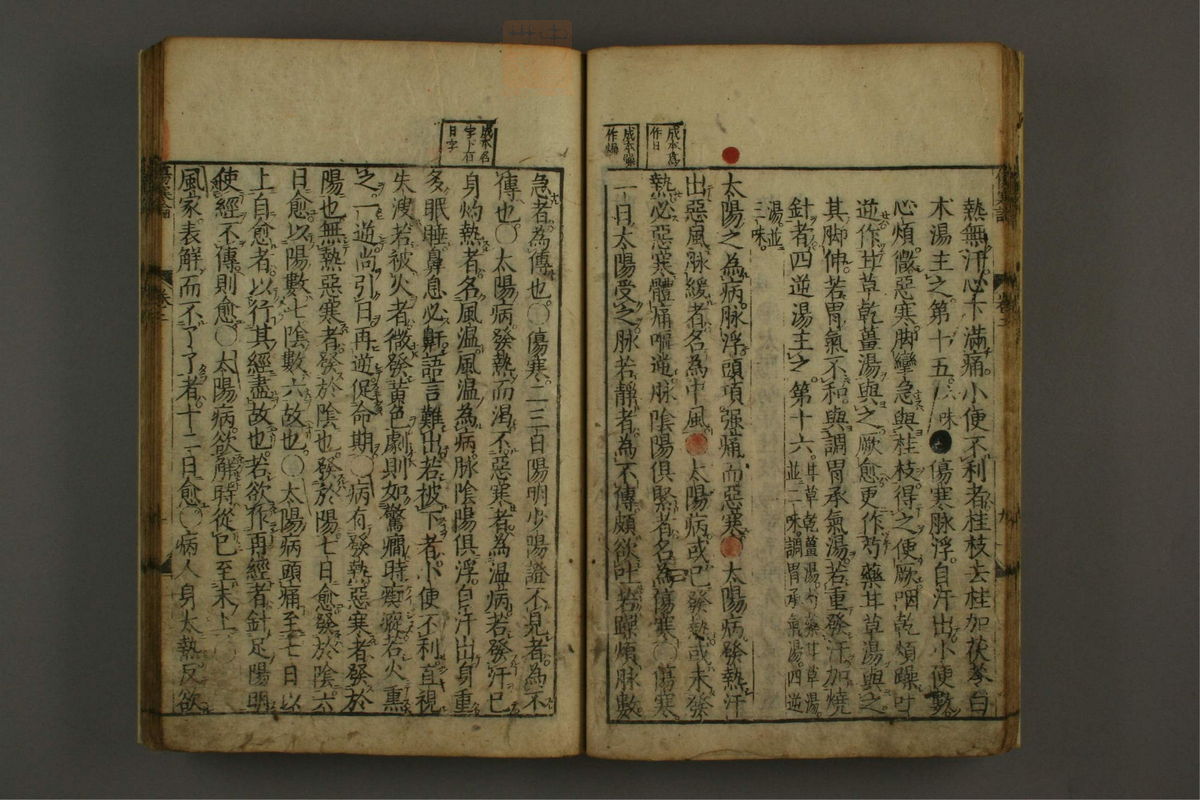 熱無汗心下滿痛小便不利者桂枝去桂加茯苓白
朮湯主之第十五六味●傷寒脉浮自汗出小便數
心煩微惡寒脚攣急與桂枝得之便厥咽乾煩躁吐
逆作甘草乾薑湯與之厥愈更作芍藥甘草湯與之
其脚伸若胃氣不和與調胃承氣湯若重發汗加燒
針者四逆湯主之第十六甘草乾薑湯芍藥甘草湯
並二味調胃承氣湯四逆
湯並
三味
太陽之為病脉浮頭項强痛而惡寒○太陽病發熱汗
出惡風脉緩者名為中風○太陽病或已發熱或未發
熱必惡寒體痛嘔逆脉陰陽俱緊者名為傷寒○傷寒
一日太陽受之脉若靜者為不傳頗欲吐若躁煩脉數
成本為
作曰
成本
作
急者為傳也○傷寒二三日陽明少陽證不見者為不
傳也○太陽病發熱而渴不惡寒者為温病若發汗已
身灼熱者名風温風温為病脉陰陽俱浮自汗出身重
多眠睡鼻息必鼾語言難出若被下者小便不利直視
失溲若被火者微發黄色劇則如驚癇時瘈瘲若火熏
之一逆尚引日再逆促命期○病有發熱惡寒者發於
陽也無熱惡寒者發於陰也發於陽七日愈發於陰六
日愈以陽數七陰數六故也○太陽病頭痛至七日以
上自愈者以行其經盡故也若欲作再經者針足陽明
使經不傳則愈○太陽病欲解時從巳至未上○
風家表解而不了了者十二日愈○病人身太熱反欲
成本名
字下有
曰字